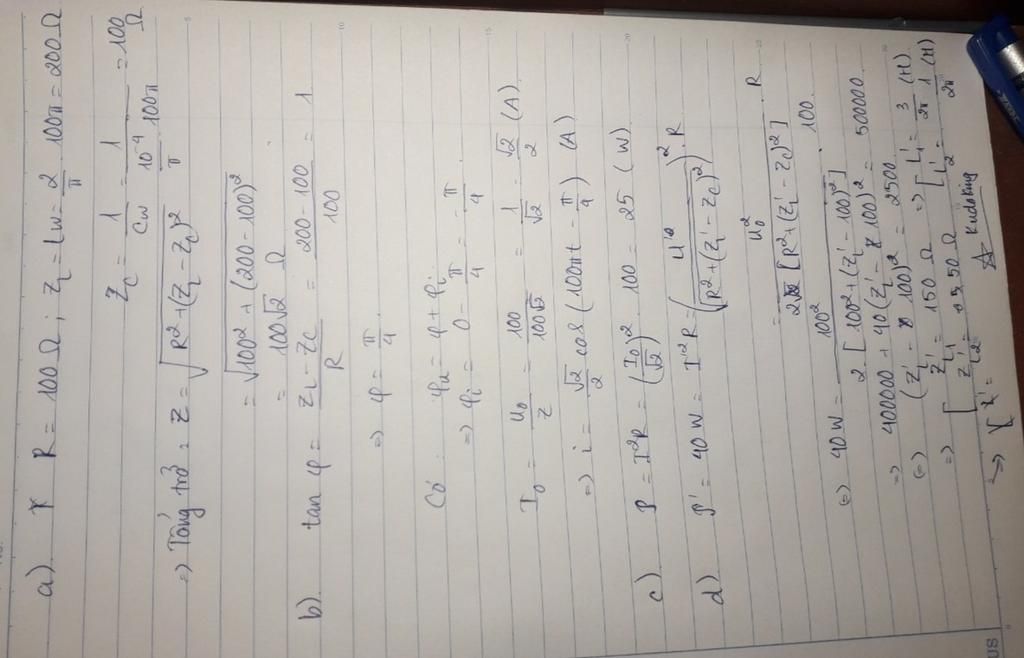 a) R = 100 Ω ; Z_L = Lω = 2/π . 100π = 200 Ω
Z_C = 1/Cω = 1/(10^-4/π . 100π) = 100 Ω
=) Tổng trở : Z = √(R² + (Z_L - Z_C)²)
= √(100² + (200 - 100)²)
= 100√2 Ω
b) tan φ = (Z_L - Z_C)/R = (200 - 100)/100 = 1
=) φ = π/4
Có : φ_u = φ + φ_i
=) φ_i = 0 - π/4 = - π/4
I_0 = U_0/Z = 100/100√2 = 1/√2 = √2/2 (A)
=) i = √2/2 cos (100πt - π/4) (A)
c) P = I²R = (I_0/√2)² . 100 = 25 (W)
d) P' = 40 W = I'²R = (U'/√(R² + (Z_L' - Z_C)²))² . R
= U_0²/2[R² + (Z_L' - Z_C)²] . R
(=) 40 W = 100²/2[100² + (Z_L' - 100)²] . 100
=) 400000 + 40(Z_L' - 100)² = 500000
(=) (Z_L' - 100)² = 2500
=) [ Z_L1' = 150 Ω =) [ L_1' = 3/2π (H)
Z_L2' = 50 Ω L_2' = 1/2π (H)
=)
☆ Kudoking
US